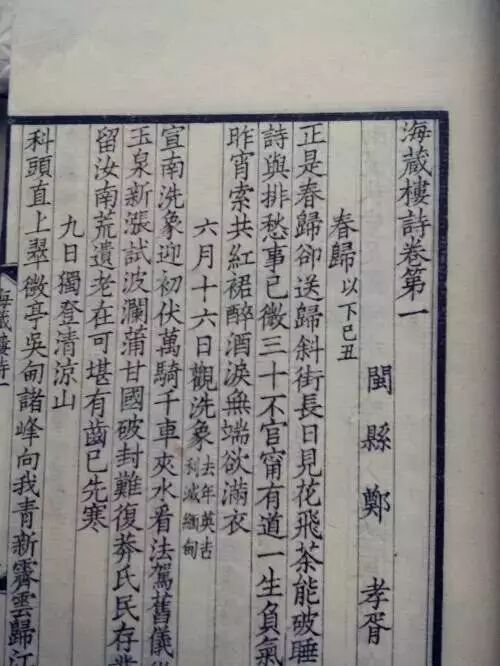 海藏樓詩卷第一
閩縣 鄭 孝胥
春歸 以下己丑
正是春歸卻送歸斜街長日見花飛茶能破睡
詩與排愁事已微三十不官甯有道一生負氣
昨宵索共紅裙醉酒淚無端欲滿衣
六月十六日觀洗象 去年英吉
利滅緬甸
宣南洗象迎初伏萬騎千車夾水看法駕舊儀
玉泉新漲試波瀾蒲甘國破封難復莽氏民存
留汝南荒遺老在可堪有齒已先寒
九日獨登清涼山
科頭直上翠微亭吳甸諸峰向我青新霽雲歸江
海藏樓詩一